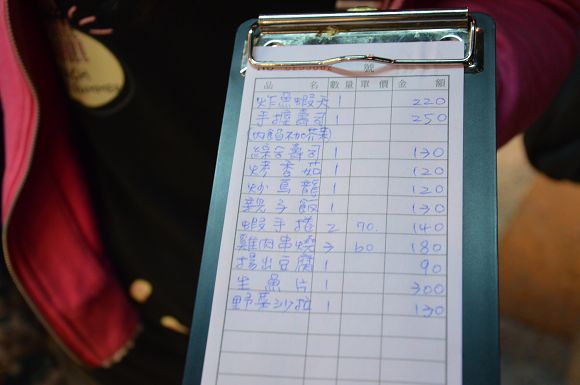 品 名 數量 單價 金 額
炸魚蝦天 1 220
手握壽司 1 250
(內餡不加芥末)
綜合壽司 1 130
烤香菇 1 120
炒烏龍 1 120
親子飯 1 130
蝦手捲 2 70. 140
雞肉串燒 3 60 180
揚出豆腐 1 90
生魚片 1 300
野菜沙拉 1 130